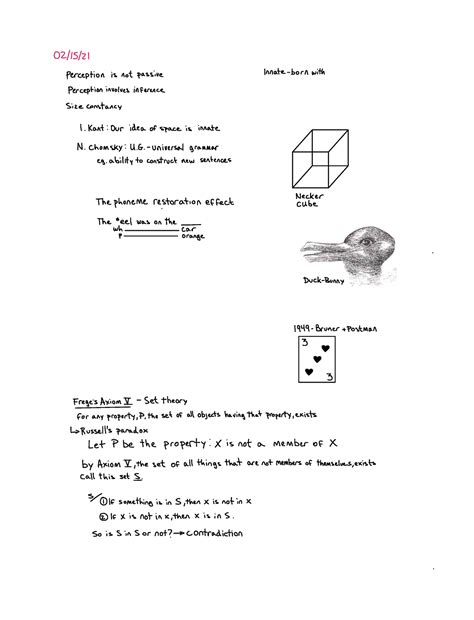 02/15/21
Perception is not passive
Innate-born with
Perception involves inference
Size constancy
I. Kant: Our idea of space is innate
N. Chomsky: U.G.-universal grammar
eg. ability to construct new sentences
Necker
Cube
The phoneme restoration effect
The *eel was on the ____
wh car
P orange
Duck-Bunny
1949-Bruner + Postman
3
3
Frege's Axiom V - Set theory
For any property, P, the set of all objects having that property, exists
↳Russell's paradox
Let P be the property: X is not a member of X
by Axiom V, the set of all things that are not members of themselves, exists
Call this set S.
① If something is in S, then x is not in x
② If x is not in x, then x is in S.
So is S in S or not? → contradiction